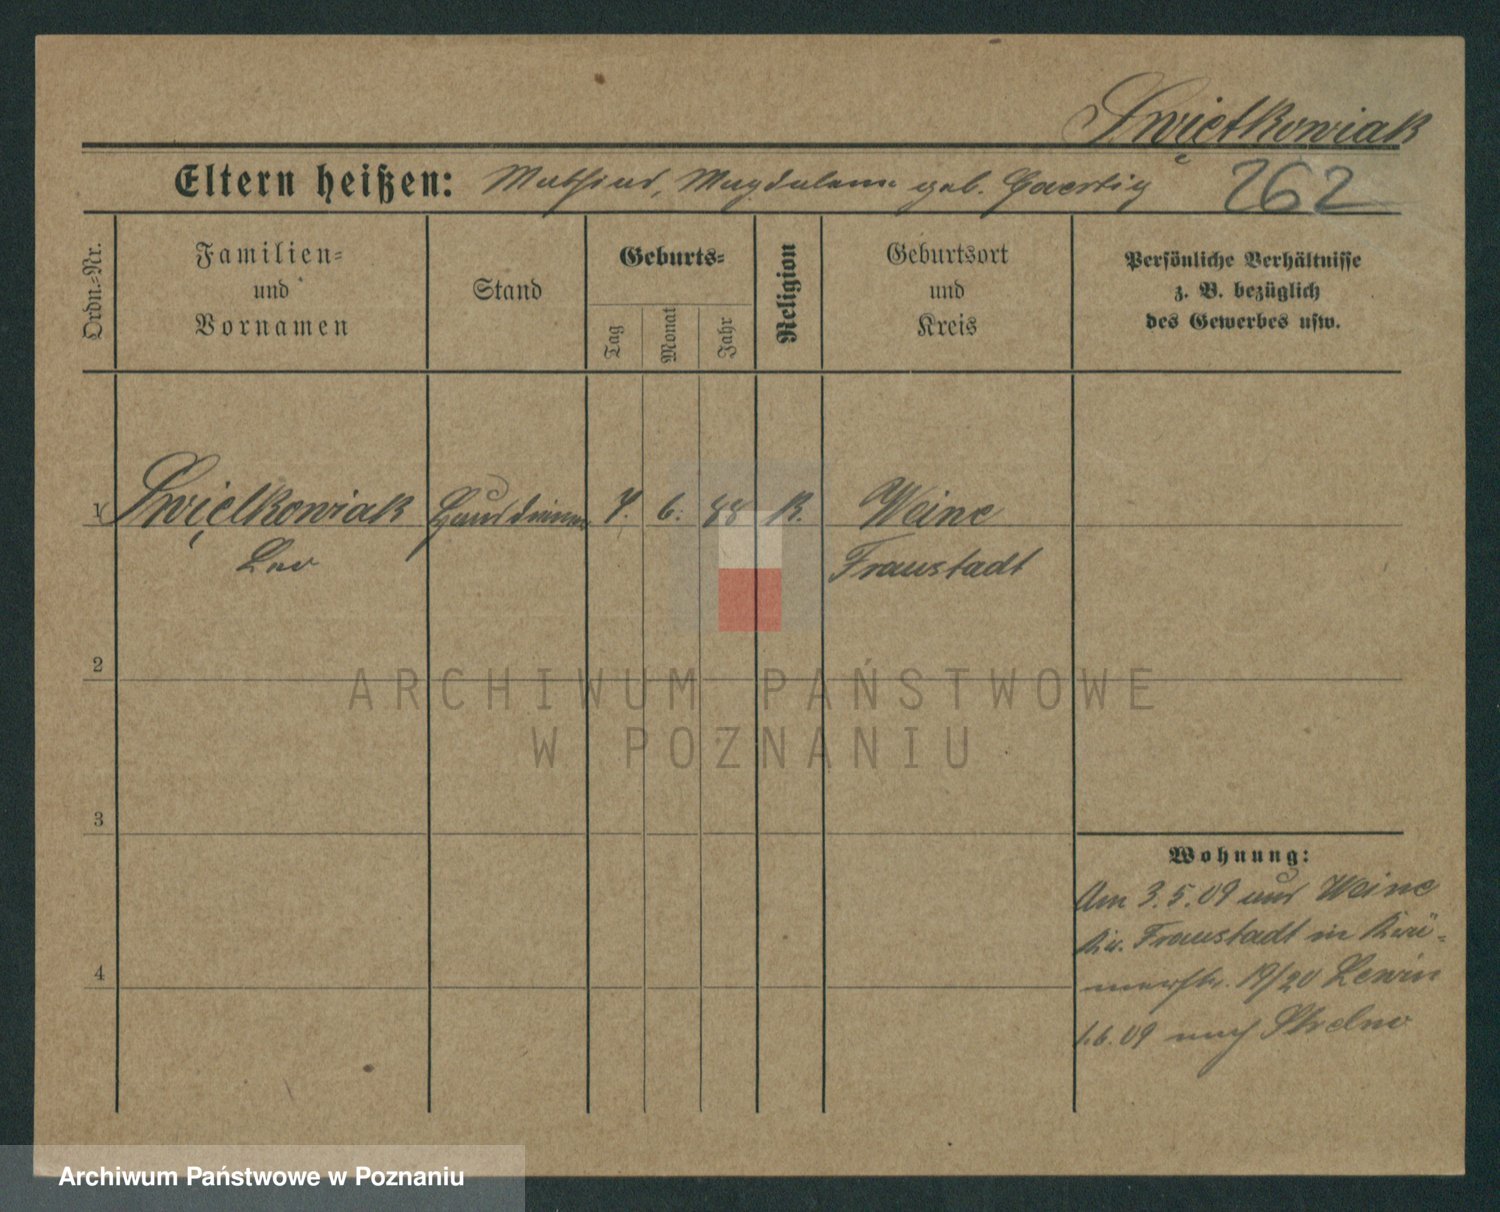 Swiętkowiak
Eltern heißen: Mathias, Magdalena geb. 262
Ordn.=Nr.
Familien=
und
Vornamen
Stand
Geburts=
Tag
Monat
Jahr
Religion
Geburtsort
und
Kreis
Persönliche Verhältnisse
z. B. bezüglich
des Gewerbes usw.
1 Swiętkowiak Hausdiener 7. 6. 88 K. Weine
Leo Fraustadt
2
ARCHIWUM PAŃSTWOWE
W POZNANIU
3
Wohnung:
Am 3.5.09 aus Weine
Kr. Fraustadt in Krä=
merstr. 19/20 Lewin
1.6.09 nach Strelno
4
Archiwum Państwowe w Poznaniu